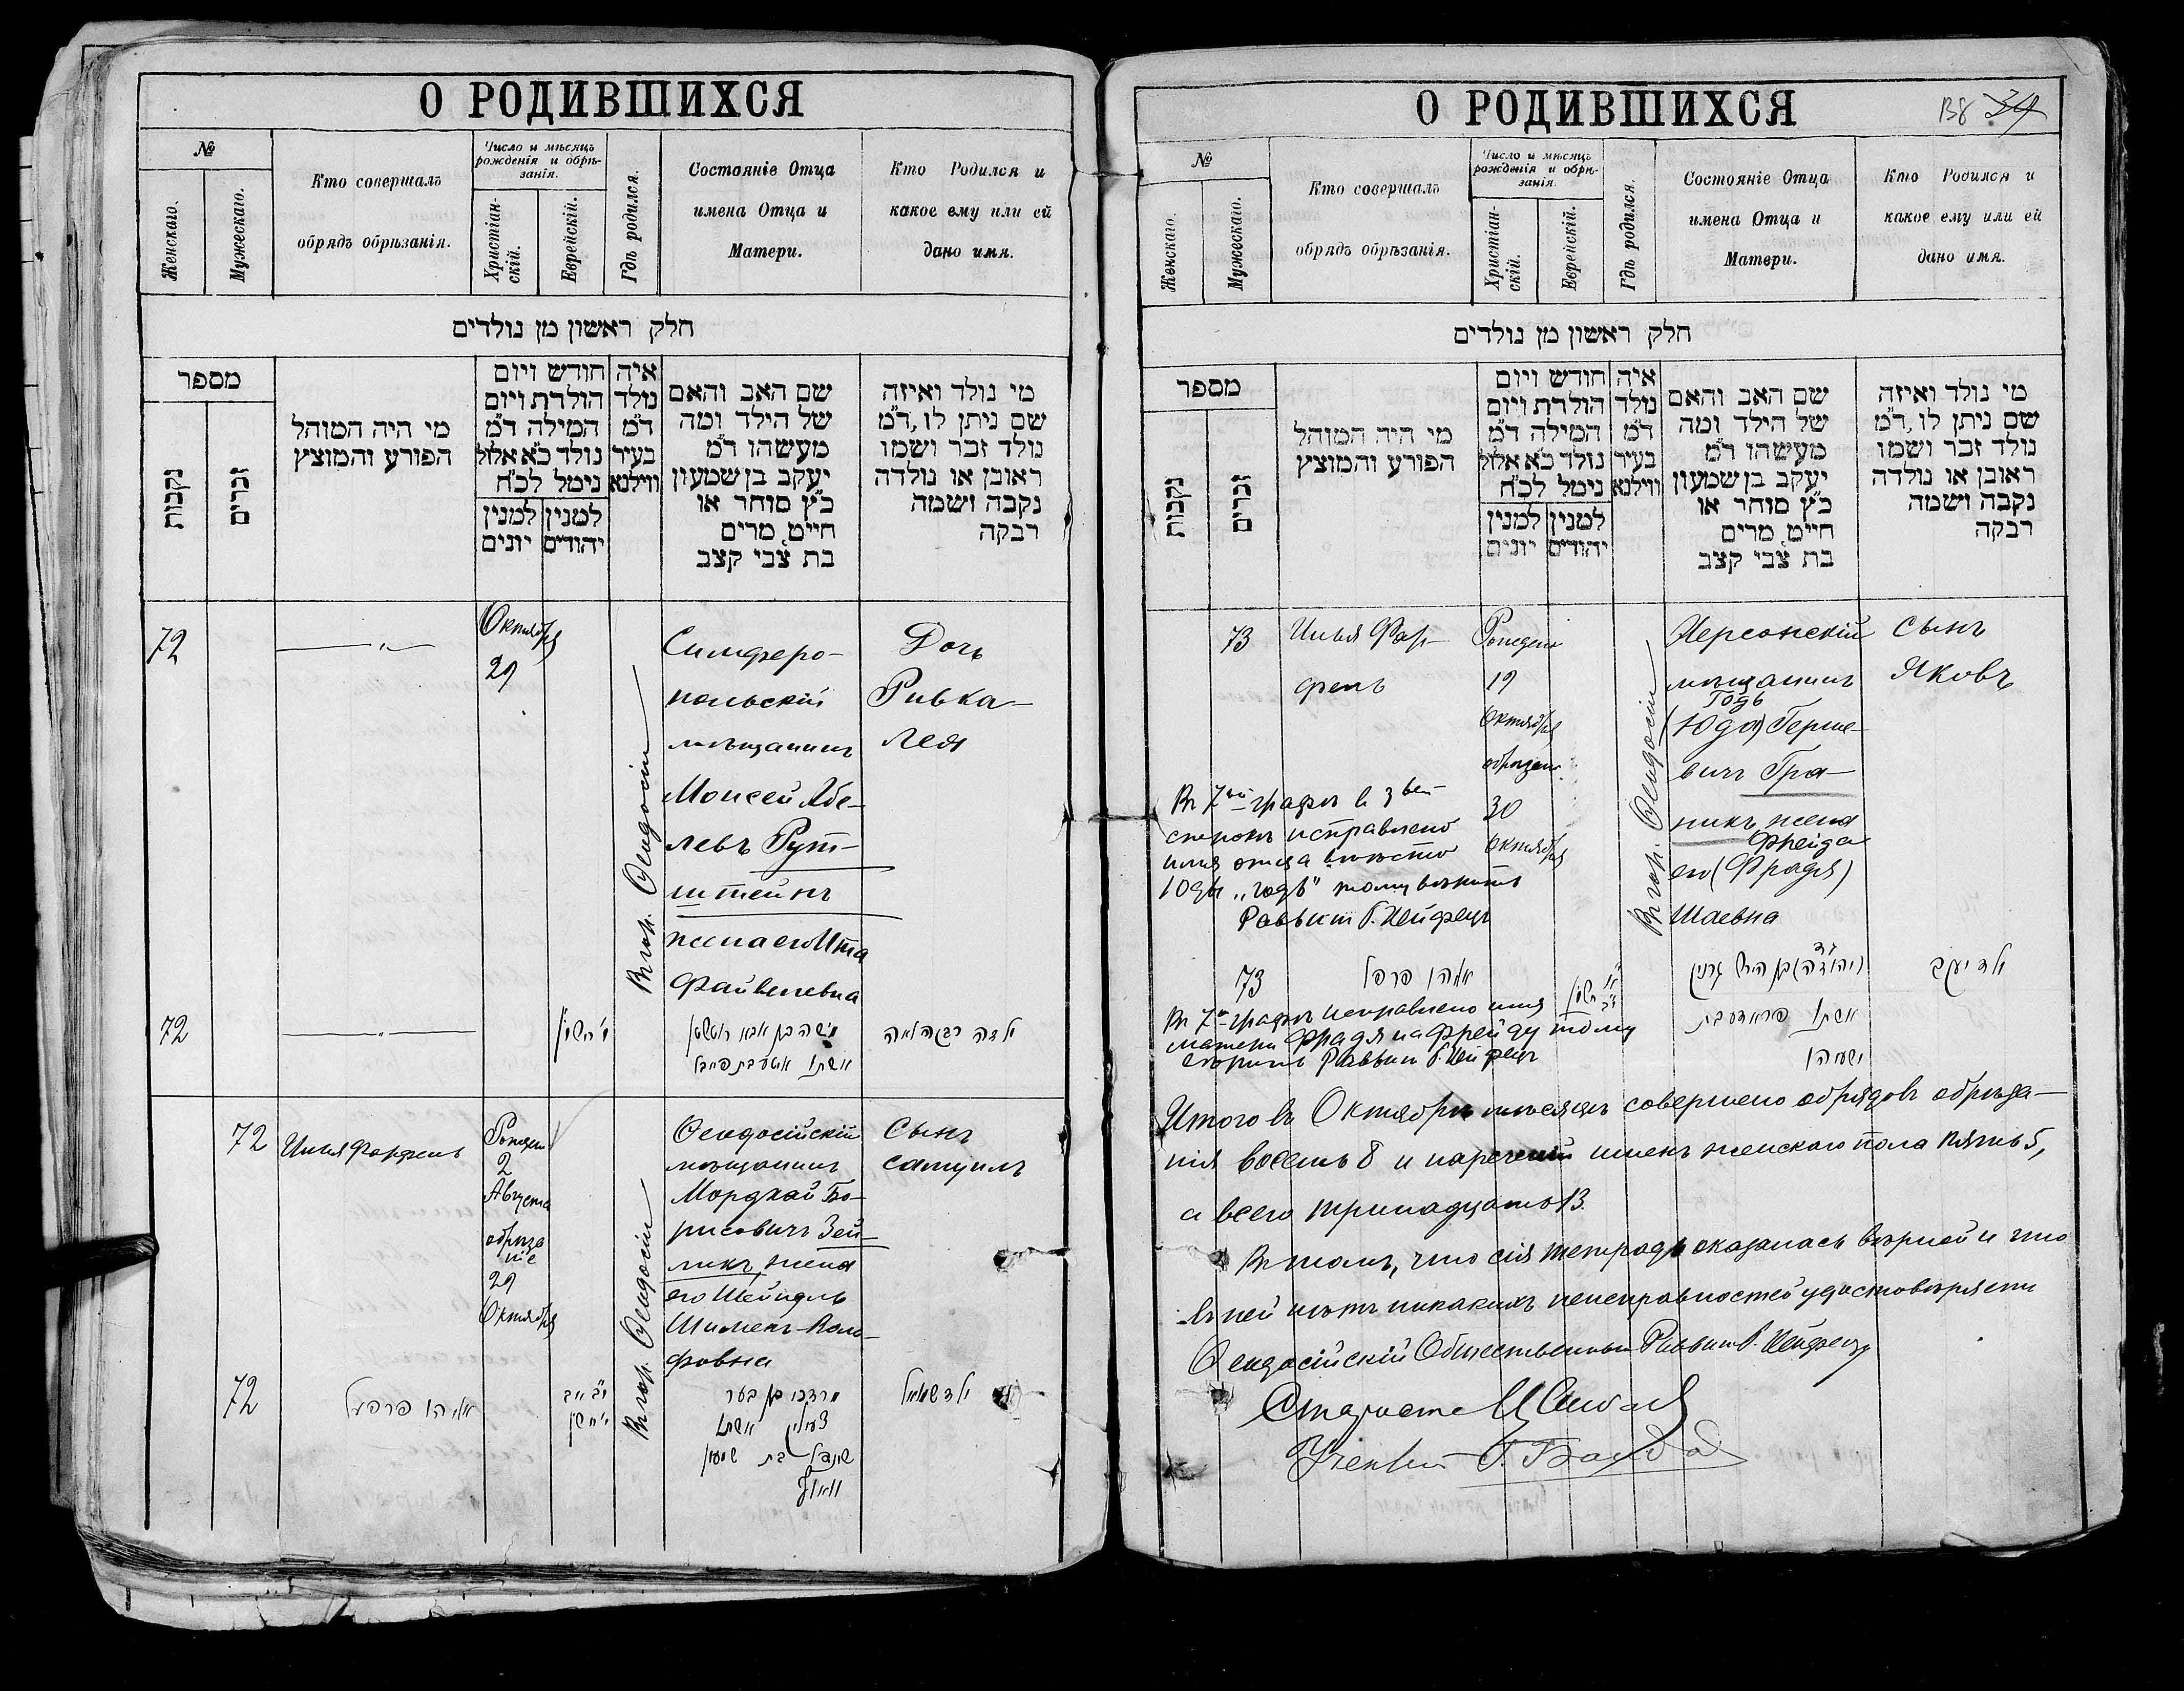 О РОДИВШИХСЯ
№
Женскаго.
Мужескаго.
Кто совершалъ
обрядъ обрѣзанія.
Число и мѣсяцъ
рожденія и обрѣ-
занія.
Христіан-
скій.
Еврейскій.
Гдѣ родился.
Состояніе Отца
имена Отца и
Матери.
Кто Родился и
какое ему или ей
дано имя.
חלק ראשון מן נולדים
מספר
נקבות
זכרים
מי היה המוהל
הפורע והמוצץ
חודש ויום
הולדת ויום
המילה ד״מ
נולד כ״א אלול
נימל לכ״ח
למנין יהודים
למנין יונים
איה
נולד
ד״מ
בעיר
ווילנא
שם האב והאם
של הילד ומה
מעשהו ד״מ
יעקב בן שמעון
כ״ץ סוחר או
חייט, מרים
בת צבי קצב
מי נולד ואיזה
שם ניתן לו, ד״מ
נולד זכר ושמו
ראובן או נולדה
נקבה ושמה
רבקה
72
Октября
29
Въ гор. Ѳеодосіи
Симферо-
польскій
мѣщанинъ
Моисей Абе-
левъ Рут-
штейнъ
жена его Ита
Файвелевна
Дочь
Ривка-
Лея
72
י׳ חשון
משה בן אבא רוטשטיין
אשתו איטע בת פייבל
ילדה רבקה לאה
72
Илья Фарфель
Рожден
2
Августа
обрѣза
ніе
29
Октября
Въ гор. Ѳеодосіи
Ѳеодосійскій
мѣщанинъ
Мордхай Бо-
рисовичъ Зей-
ликъ, жена
его Шейндль
Шимень-Воль-
фовна
Сынъ
Самуилъ
72
אליהו פרפעל
י״ב אב
י׳ חשון
מרדכי בן בער
אשתו
שיינדל בת שמעון
וואלף
ילד שמואל
О РОДИВШИХСЯ
138 39
№
Женскаго.
Мужескаго.
Кто совершалъ
обрядъ обрѣзанія.
Число и мѣсяцъ
рожденія и обрѣ-
занія.
Христіан-
скій.
Еврейскій.
Гдѣ родился.
Состояніе Отца
имена Отца и
Матери.
Кто Родился и
какое ему или ей
дано имя.
חלק ראשון מן נולדים
מספר
נקבות
זכרים
מי היה המוהל
הפורע והמוצץ
חודש ויום
הולדת ויום
המילה ד״מ
נולד כ״א אלול
נימל לכ״ח
למנין יהודים
למנין יונים
איה
נולד
ד״מ
בעיר
ווילנא
שם האב והאם
של הילד ומה
מעשהו ד״מ
יעקב בן שמעון
כ״ץ סוחר או
חייט, מרים
בת צבי קצב
מי נולד ואיזה
שם ניתן לו, ד״מ
נולד זכר ושמו
ראובן או נולדה
נקבה ושמה
רבקה
73
Илья Фар-
фель
Рожден
19
Октября
обрѣзан
30
Октября
Въ гор. Ѳеодосіи
Херсонскій
мѣщанинъ
Годъ
(Юда) Герше-
вичъ Гра-
никъ жена
Фрейда
его (Фрадя)
Шаевна
Сынъ
Яковъ
Въ 7ой графѣ в 3ьей
строкѣ исправлено
имя отца вмѣсто
Юды „Годъ" тому вѣритъ
Раввинъ Г. Хейфецъ
73
אליהו פרפל
(יהודה) בן הירש גרניק
אשתו פראדע בת
ישעיהו
ילד יעקב
Въ 7й графѣ исправлено имя
матери Фрадя на Фрейду тому
вѣритъ Раввинъ Г. Хейфецъ
Итого въ Октябрѣ мѣсяцѣ совершено обрядовъ обрѣза-
нія восемь 8 и нареченій именъ женскаго пола пять 5,
а всего тринадцать 13.
Въ томъ, что сія тетрадь оказалась вѣрной и что
въ ней нѣтъ никакихъ неисправностей удостовѣряетъ
Ѳеодосійскій Общественный Раввинъ Г. Хейфецъ
Староста
Ученый